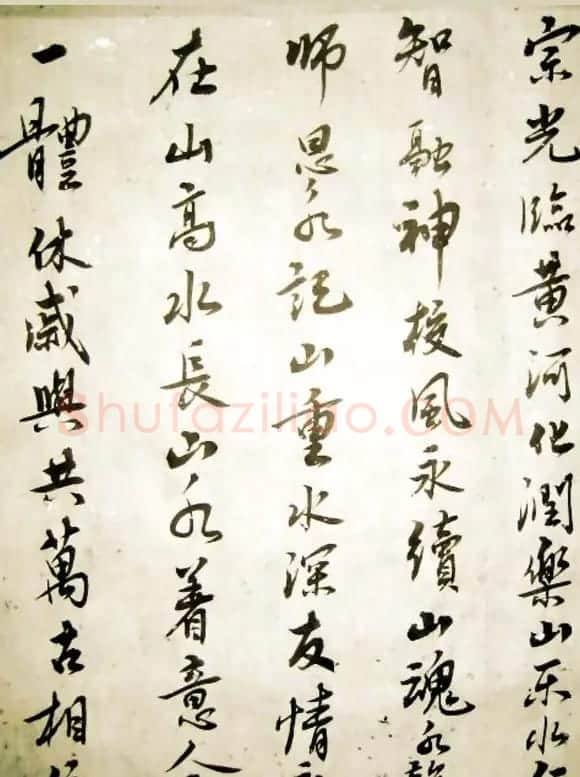 宗光臨黄河化潤樂山乐水仁
智融神梭風永續山魂水
師恩永記山重水深友情
在山高水長山水着意人
一體休戚與共萬古相
Shufaziliao.COM